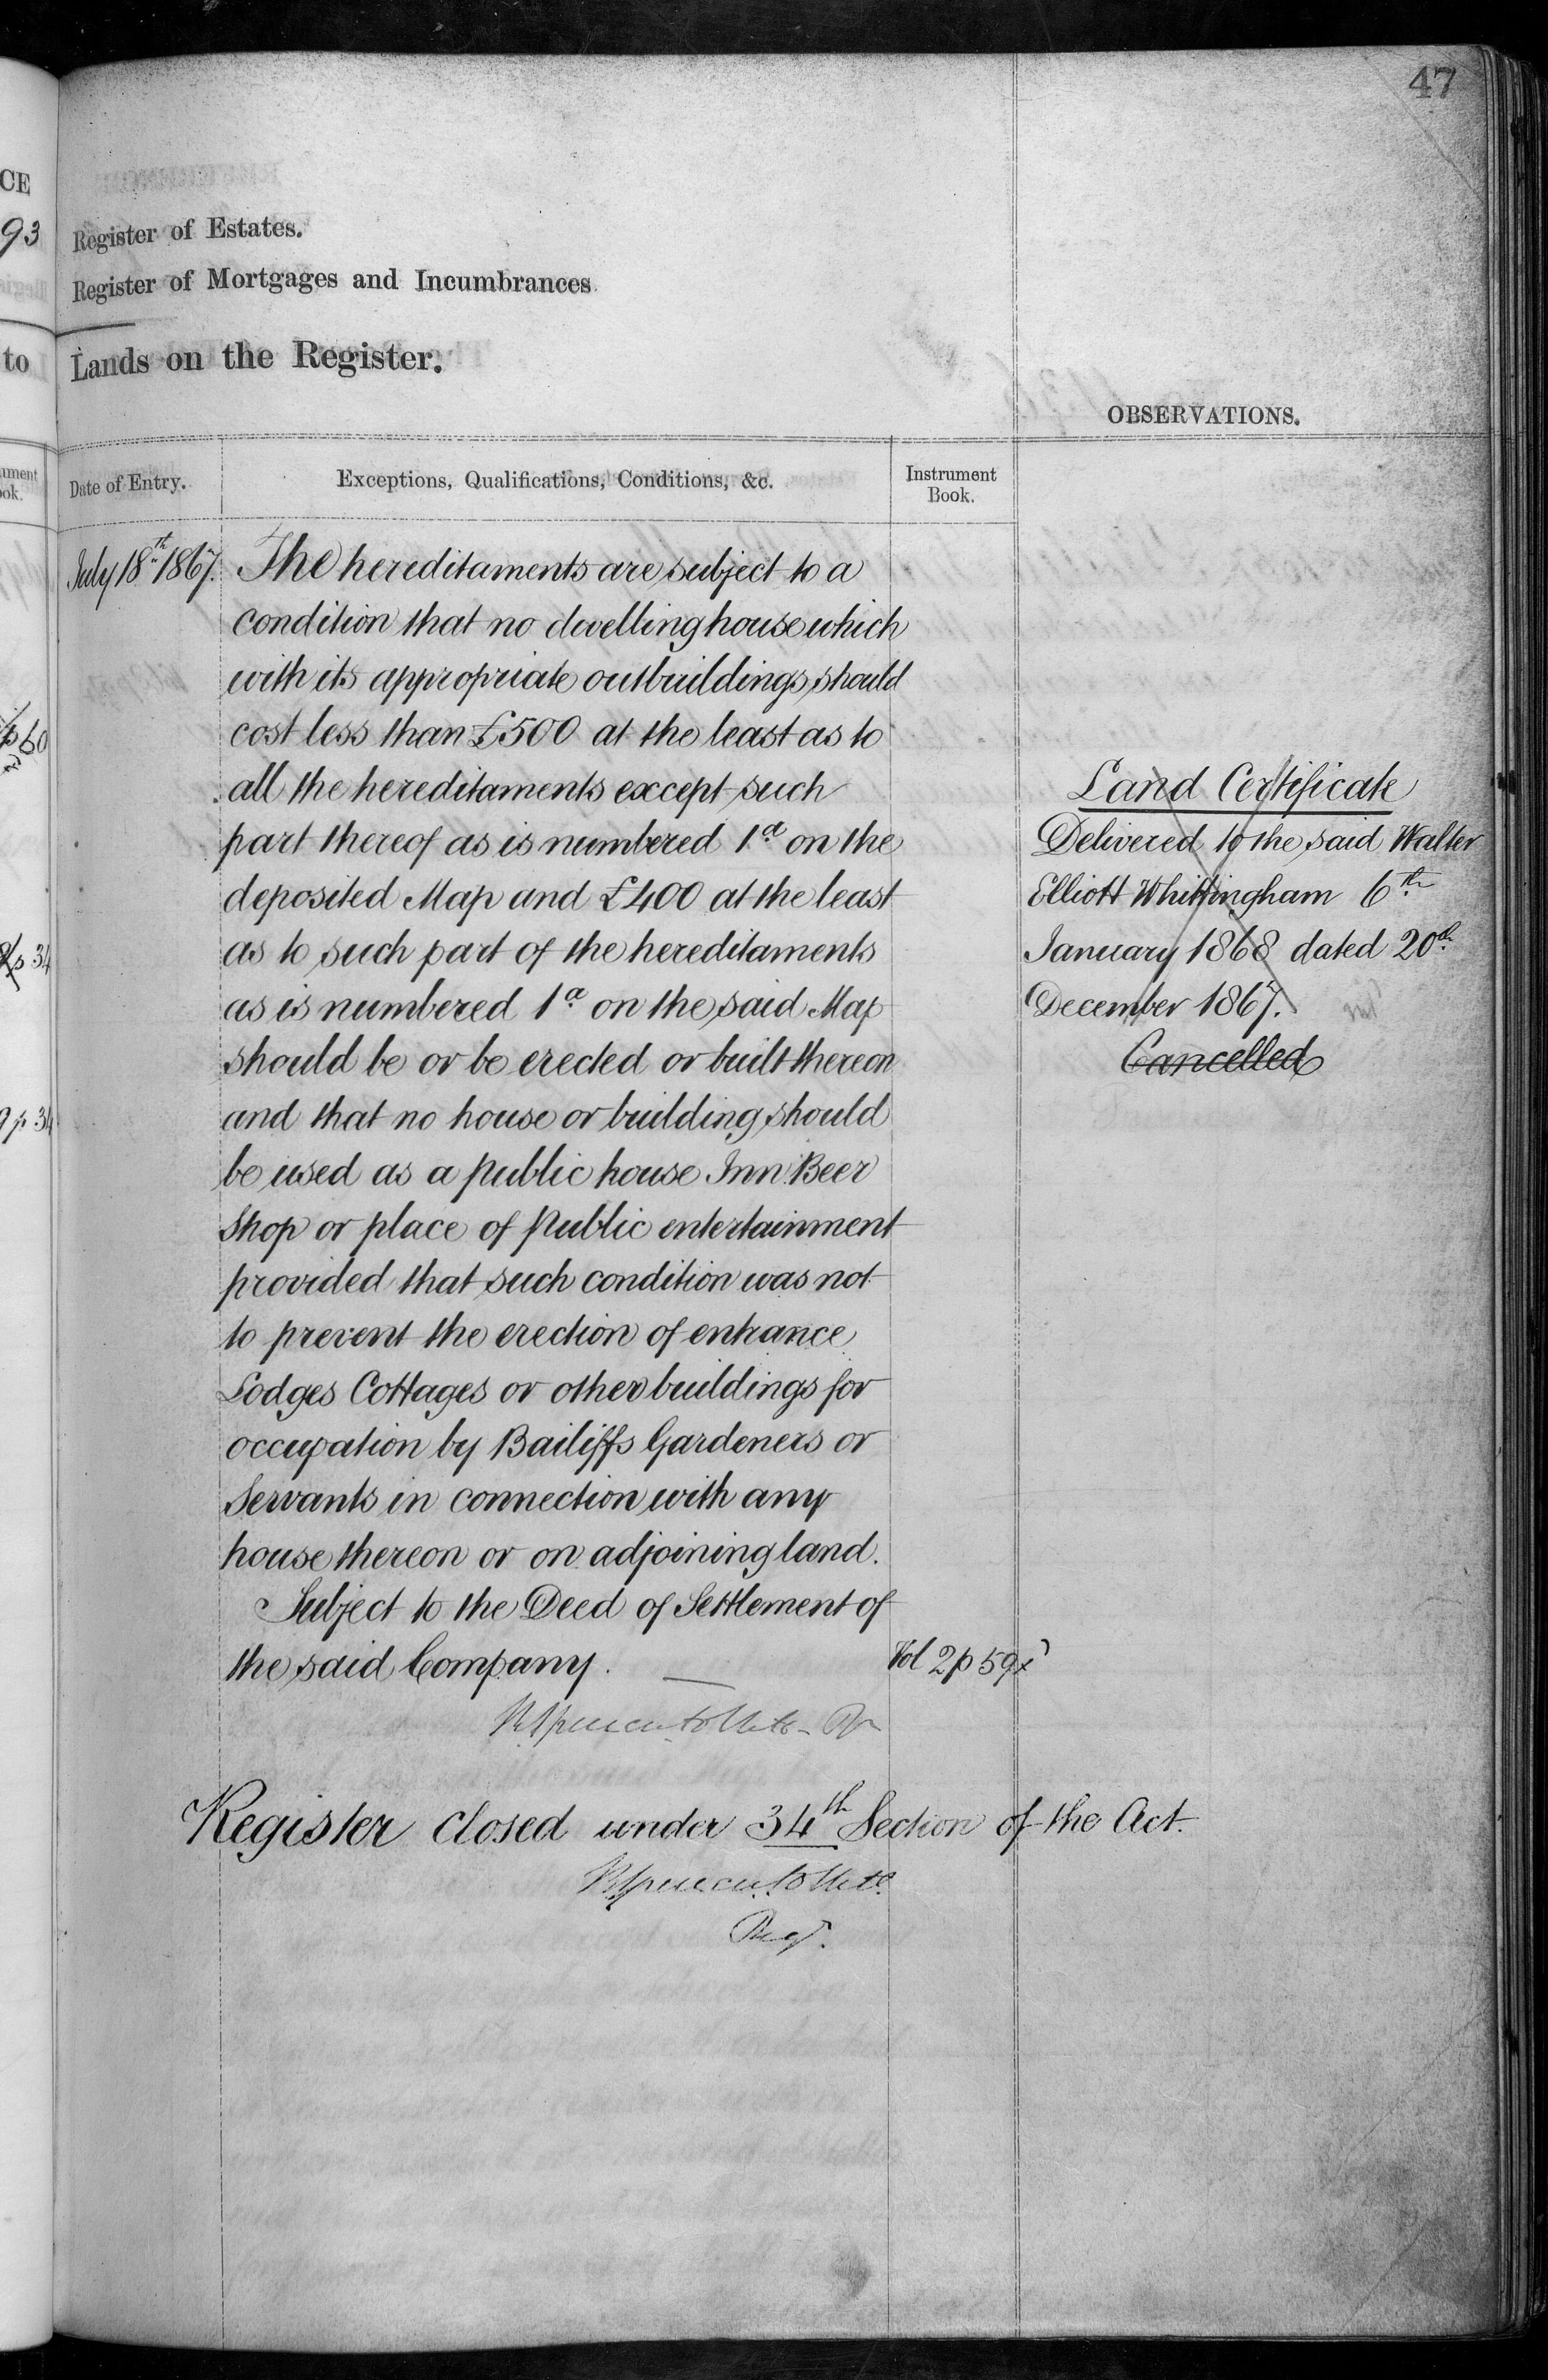 47
CE
93
Register of Estates.
Register of Mortgages and Incumbrances
to
Lands on the Register.
OBSERVATIONS.
Date of Entry.
Exceptions, Qualifications, Conditions, &c.
Instrument
Book.
July 18th 1867.
The hereditaments are subject to a
condition that no dwelling house which
with its appropriate outbuildings should
cost less than £500 at the least as to
all the hereditaments except such
part thereof as is numbered 1a on the
deposited Map and £400 at the least
as to such part of the hereditaments
as is numbered 1a on the said Map
should be or be erected or built thereon
and that no house or building should
be used as a public house Inn Beer
Shop or place of Public entertainment
provided that such condition was not
to prevent the erection of entrance
Lodges Cottages or other buildings for
occupation by Bailiffs Gardeners or
Servants in connection with any
house thereon or on adjoining land.
Subject to the Deed of Settlement of
the said Company.
Vol 2 p 59
Land Certificate
Delivered to the said Walter
Elliott Whittingham 6th
January 1868 dated 20th
December 1867.
Cancelled
Register closed under 34th Section of the Act.
Regr.